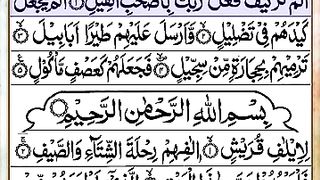 اَلَمْ تَرَ كَيْفَ فَعَلَ رَبُّكَ بِاَصْحٰبِ الْفِيْلِ ۝١ اَلَمْ يَجْعَلْ
كَيْدَهُمْ فِيْ تَضْلِيْلٍ ۝٢ وَّاَرْسَلَ عَلَيْهِمْ طَيْرًا اَبَابِيْلَ ۝٣
تَرْمِيْهِمْ بِحِجَارَةٍ مِّنْ سِجِّيْلٍ ۝٤ فَجَعَلَهُمْ كَعَصْفٍ مَّاْكُوْلٍ ۝٥
بِسْمِ اللّٰهِ الرَّحْمٰنِ الرَّحِيْمِ
لِاِيْلٰفِ قُرَيْشٍ ۝١ اٖلٰفِهِمْ رِحْلَةَ الشِّتَآءِ وَالصَّيْفِ ۝٢